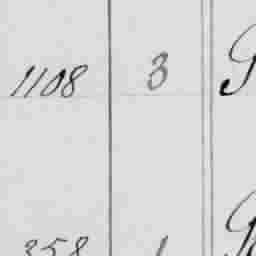 1108 3
358 1